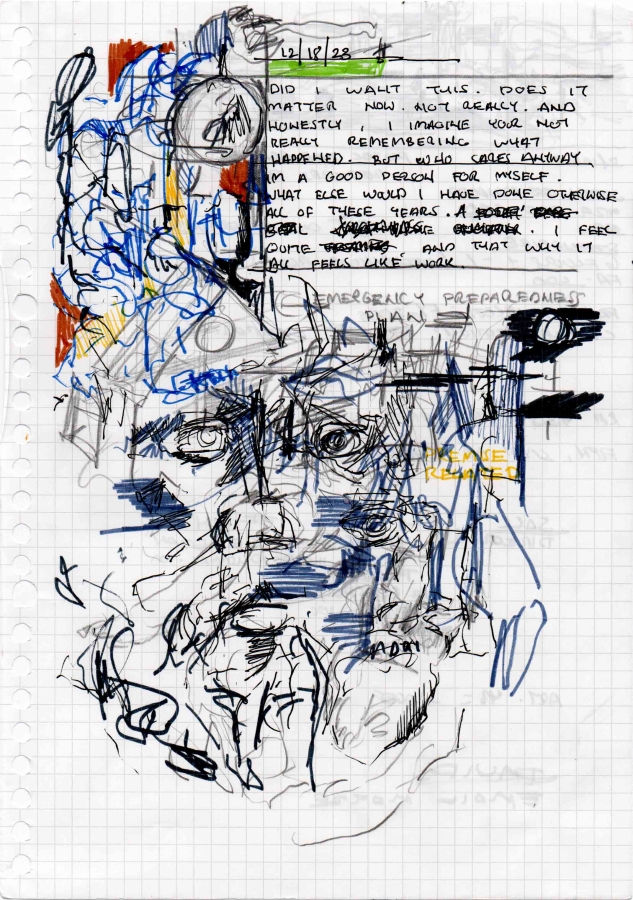 12/18/23
DID I WANT THIS. DOES IT
MATTER NOW. NOT REALLY. AND
HONESTLY, I IMAGINE YOUR NOT
REALLY REMEMBERING WHAT
HAPPENED. BUT WHO CARES ANYWAY
IM A GOOD PERSON FOR MYSELF.
WHAT ELSE WOULD I HAVE DONE OTHERWISE
ALL OF THESE YEARS. A
I FEEL
QUITE AND THAT WHY IT
ALL FEELS LIKE WORK
EMERGENCY PREPAREDNESS
PLAN
PREMISE
RELATED